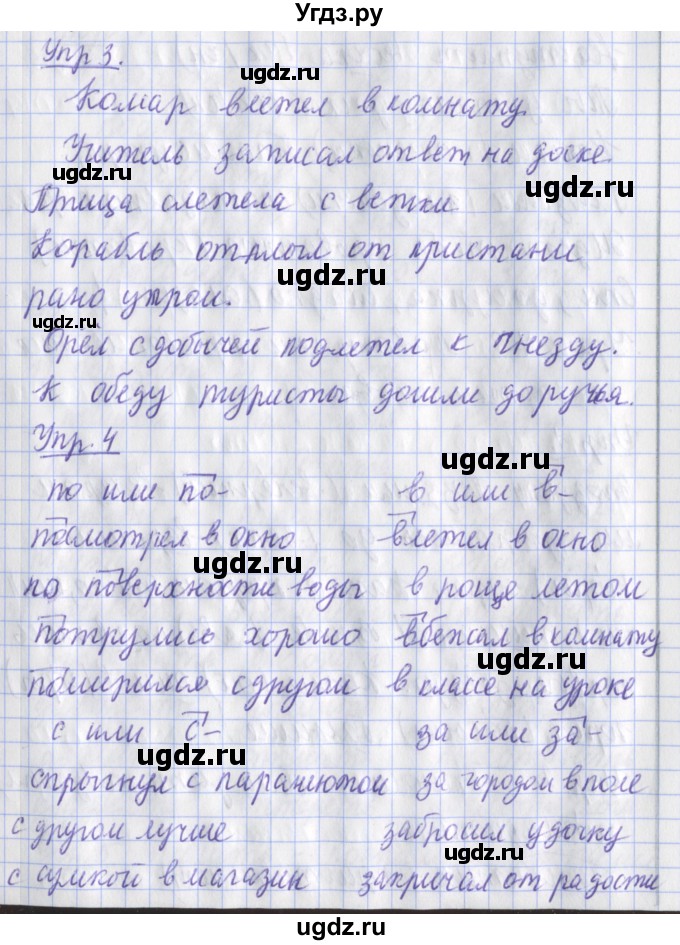 Угдз.ру
Упр 3.
ugdz.ru
Комар влетел в комнату.
ugdz.ru
Учитель записал ответ на доске.
ugdz.ru
ugdz.ru
Птица слетела с ветки
Корабль отплыл от пристани
ugdz.ru
рано утром.
ugdz.ru
Орёл с добычей подлетел к гнезду.
К обеду туристы дошли до ручья.
Упр. 4
ugdz.ru
по или по- в или в-
посмотрел в окно влетел в окно
ugdz.ru
по поверхности воды в роще летом
потрулись хорошо вбежал в комнату
ugdz.ru
помирился с другом в классе на уроке
с или с- за или за-
ugdz.ru
спрыгнул с парашютом за городом в поле
с другом лучше забросил удочку
ugdz.ru
с сумкой в магазин закричал от радости
ugdz.ru